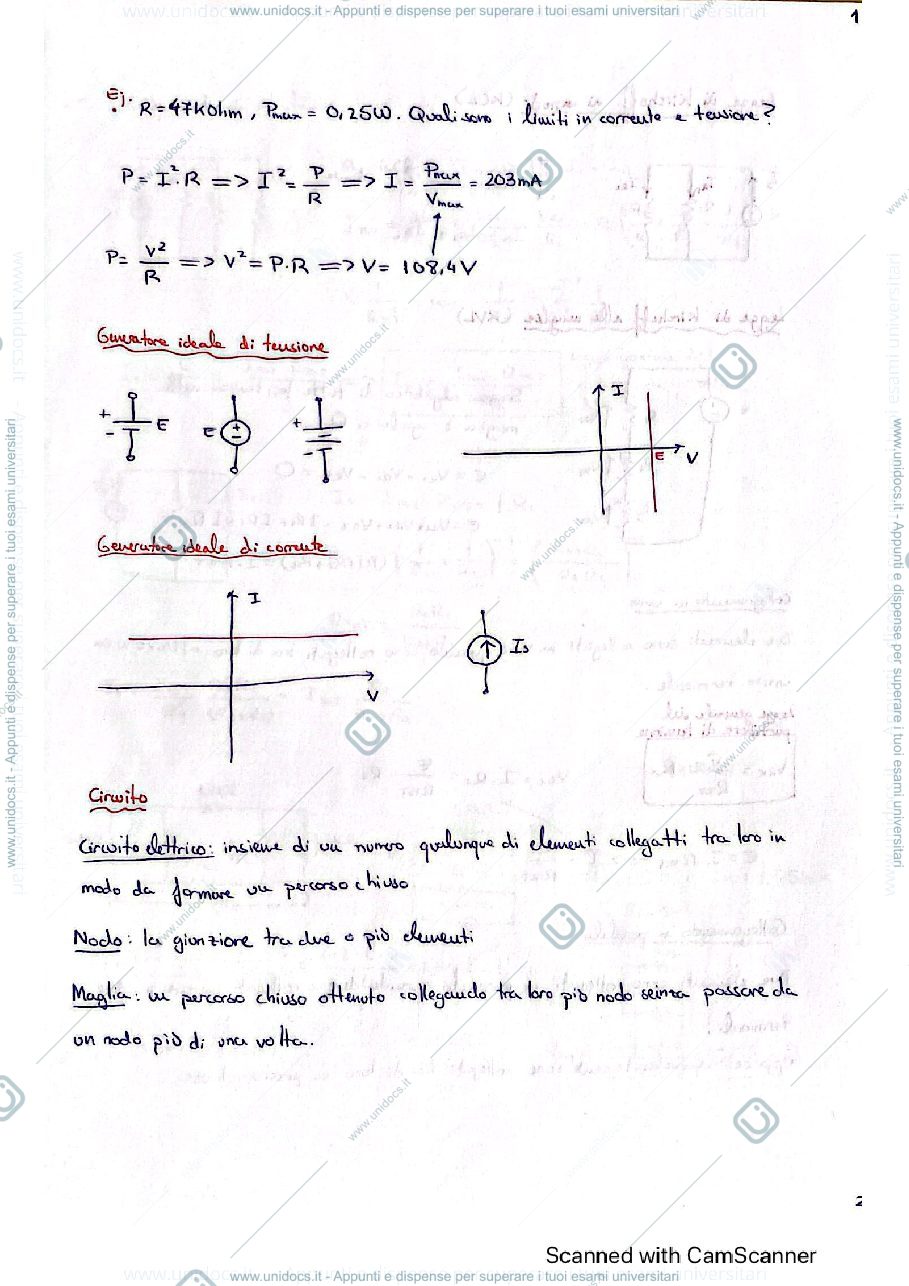 www.unidocs.it - Appunti e dispense per superare i tuoi esami universitari
1
Ej. R=47KOhm, Pmax = 0,25W. Quali sono i limiti in corrente e tensione?
P = I²·R => I² = P/R => I = Pmax/Vmax = 203mA
P = V²/R => V² = P·R => V = 108,4V
Generatore ideale di tensione
+ - E
E + -
+ -
I
E V
Generatore ideale di corrente
I
V
Is
Circuito
Circuito elettrico: insieme di un numero qualunque di elementi collegatti tra loro in
modo da formare un percorso chiuso
Nodo: la giunzione tra due o più elementi
Maglia: un percorso chiuso ottenuto collegando tra loro più nodo seinza passare da
un nodo più di una volta.
2
Scanned with CamScanner
www.unidocs.it - Appunti e dispense per superare i tuoi esami universitari